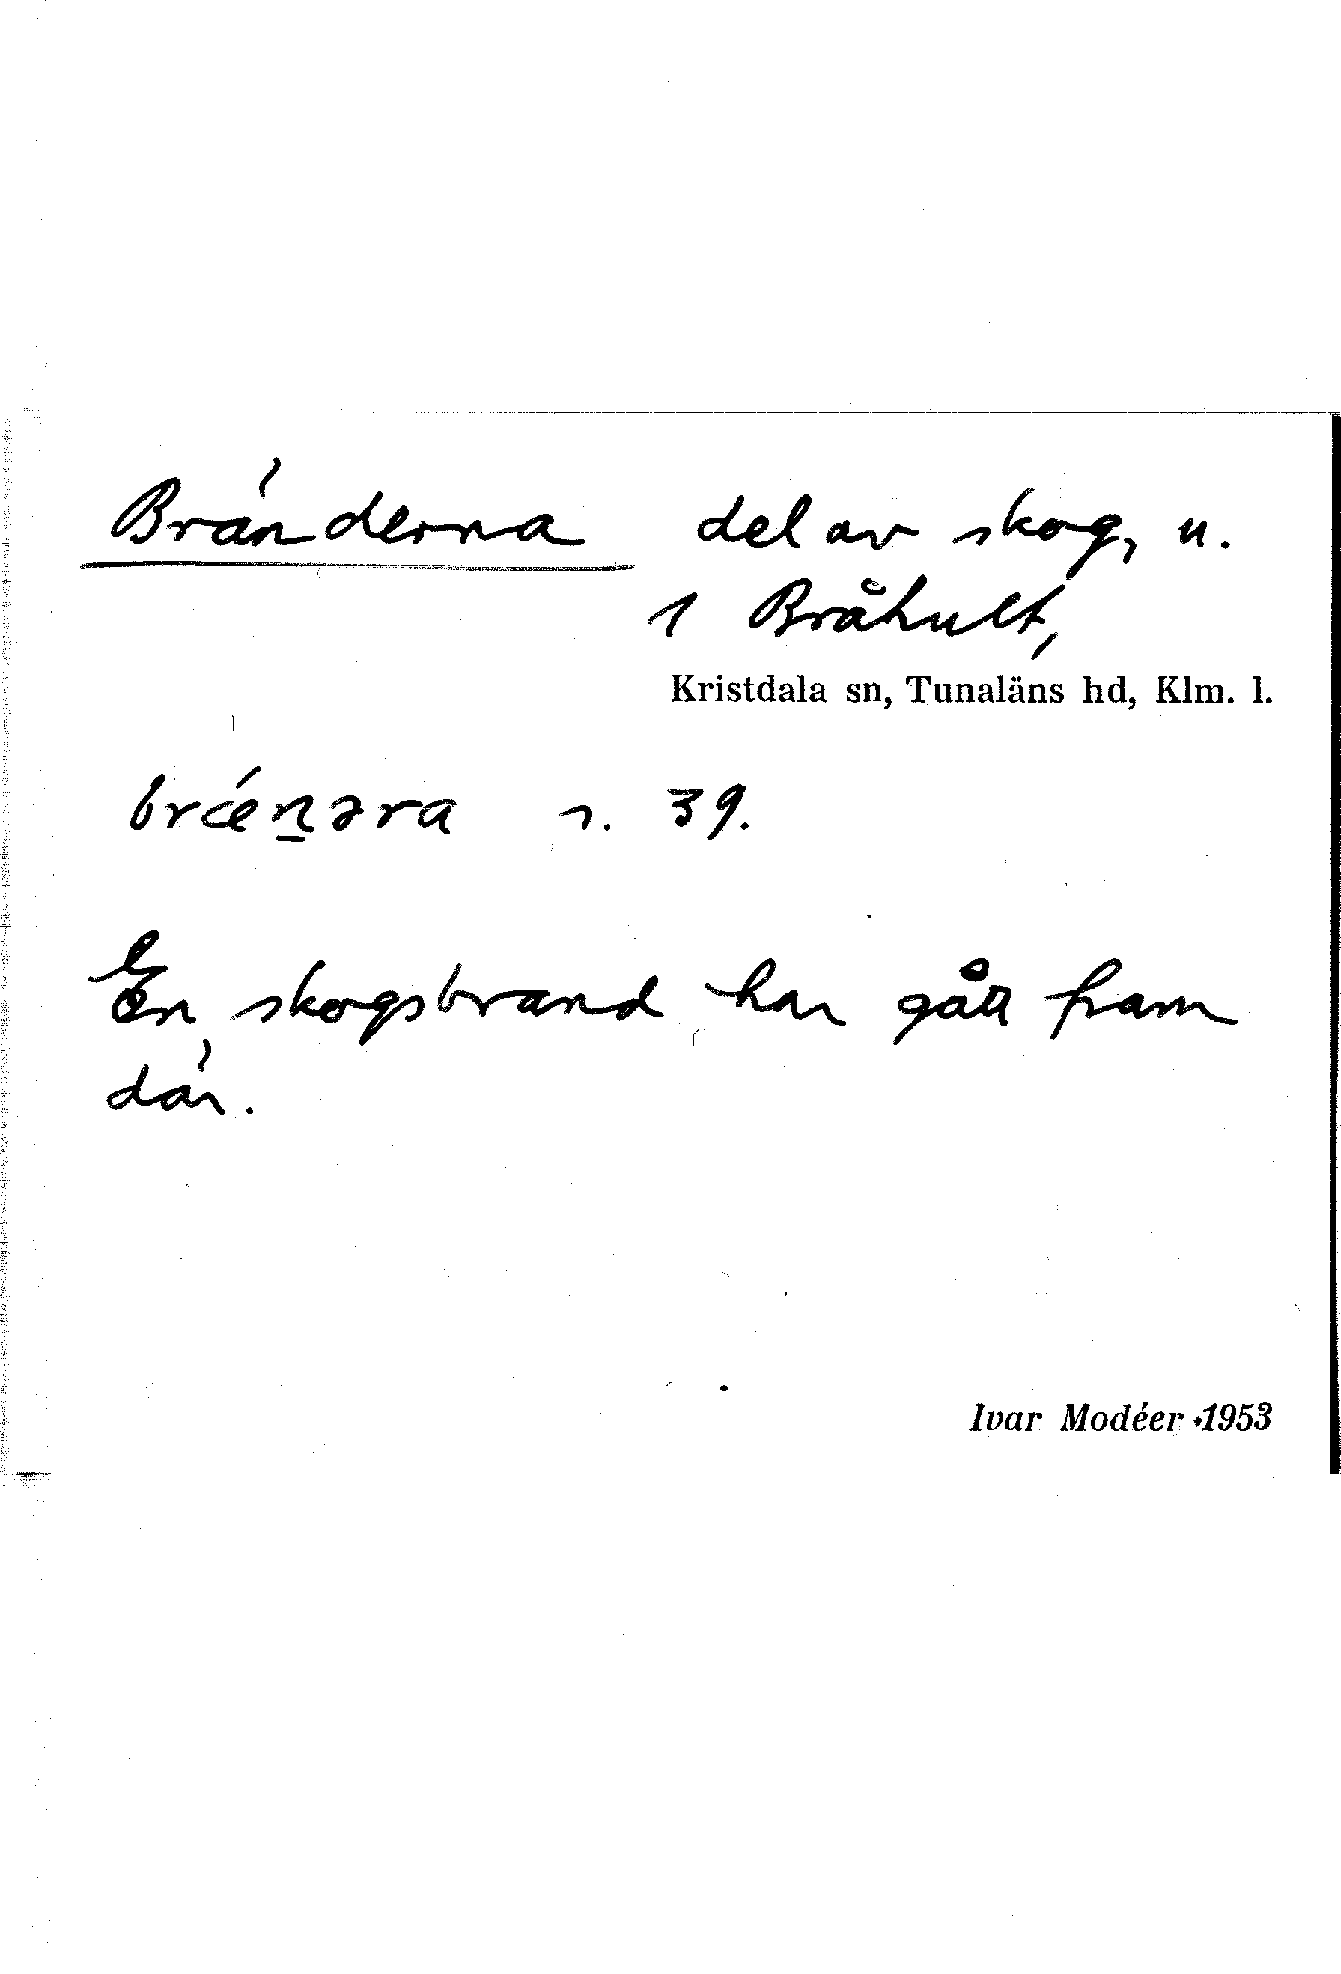 Bränderna del av skog, u.
1 Bråhult,
Kristdala sn, Tunaläns hd, Klm. l.
bræ´n̠əra s. 39.
En skogsbrand har gått fram
där.
Ivar Modéer 1953